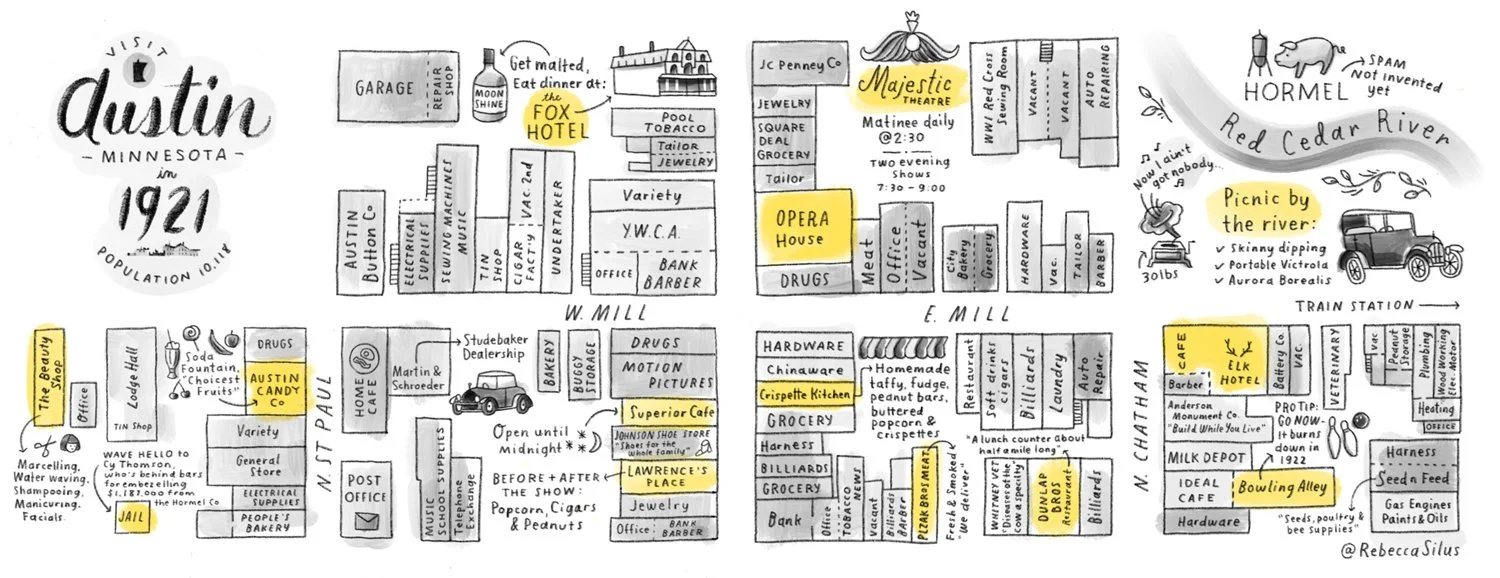 VISIT
Austin
- MINNESOTA -
in
1921
POPULATION 10,118
GARAGE
REPAIR
SHOP
MOON
SHINE
Get malted,
Eat dinner at:
the
FOX
HOTEL
POOL
TOBACCO
Tailor
JEWELRY
AUSTIN
Button Co
ELECTRICAL
SUPPLIES
SEWING MACHINES
MUSIC
TIN
SHOP
CIGAR
FACT'Y
VAC. 2nd
UNDERTAKER
Variety
Y.W.C.A.
OFFICE
BANK
BARBER
JC Penney Co
JEWELRY
SQUARE
DEAL
GROCERY
Tailor
OPERA
House
DRUGS
Majestic
THEATRE
Matinee daily
@2:30
Two evening
shows
7:30 - 9:00
Meat
Office
Vacant
City
Bakery
Grocery
WWI Red Cross
Sewing Room
VACANT
VACANT
AUTO
REPAIRING
HARDWARE
Vac.
TAILOR
BARBER
HORMEL
SPAM
Not invented
yet
Red Cedar River
Now I ain't
got nobody...
30lbs
Picnic by
the river:
✓ Skinny dipping
✓ Portable Victrola
✓ Aurora Borealis
W. MILL
E. MILL
TRAIN STATION
The Beauty
Shop
Office
Marcelling,
Water waving,
Shampooing,
Manicuring,
Facials.
Lodge Hall
TIN Shop
Soda
Fountain,
"Choicest
Fruits"
DRUGS
AUSTIN
CANDY
Co
Variety
General
Store
ELECTRICAL
SUPPLIES
PEOPLE'S
BAKERY
WAVE HELLO to
Cy Thomson,
who's behind bars
for embezzling
$1,187,000 from
the Hormel Co
JAIL
N. ST PAUL
HOME
CAFE
Martin &
Schroeder
Studebaker
Dealership
POST
OFFICE
MUSIC
SCHOOL SUPPLIES
Telephone
Exchange
BAKERY
BUGGY
STORAGE
Open until
midnight
BEFORE + AFTER
THE SHOW:
Popcorn, Cigars
& Peanuts
DRUGS
MOTION
PICTURES
Superior Cafe
JOHNSON SHOE STORE
"Shoes for the
whole family"
LAWRENCE'S
PLACE
Jewelry
Office:
BANK
BARBER
HARDWARE
Chinaware
Crispette Kitchen
GROCERY
Harness
BILLIARDS
GROCERY
Bank
Office
TOBACCO
NEWS
Vacant
Billiards
Barber
PLZAK BROS MEAT
Homemade
taffy, fudge,
peanut bars,
buttered
popcorn &
crispettes
Fresh & Smoked
"We deliver"
Restaurant
Soft drinks
cigars
Billiards
Laundry
Auto
Repair
"A lunch counter about
half a mile long"
WHITNEY VET
"Diseases of the
cow a specialty"
DUNLAP
BROS
Restaurant
Billiards
N. CHATHAM
CAFE
ELK
HOTEL
Barber
Battery Co.
VAC.
VETERINARY
Vac
Peanut
Storage
Plumbing
Wood Working
Elec. Motor
Heating
OFFICE
Anderson
Monument Co.
"Build While You Live"
MILK DEPOT
IDEAL
CAFE
Hardware
PRO TIP:
GO NOW -
It burns
down in
1922
Bowling Alley
Harness
Seed n Feed
Gas Engines
Paints & Oils
"Seeds, poultry &
bee supplies"
@RebeccaSilus